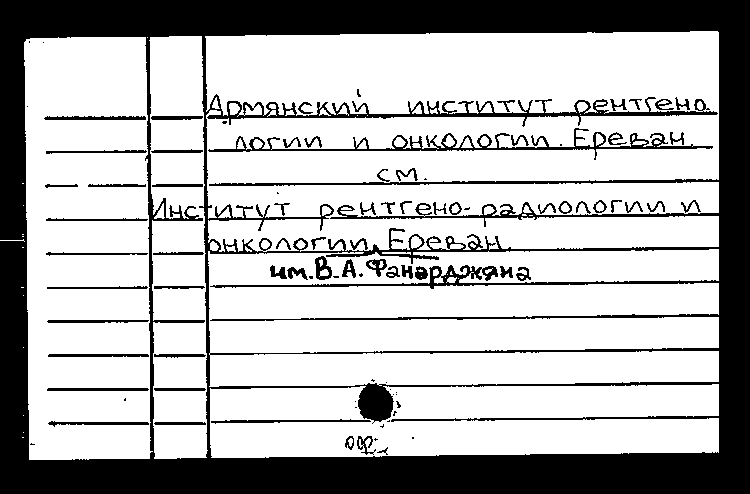 Армянский институт рентгено
логии и онкологии. Ереван.
см.
Институт рентгено-радиологии и
онкологии, Ереван.
им. В. А. Фанарджяна